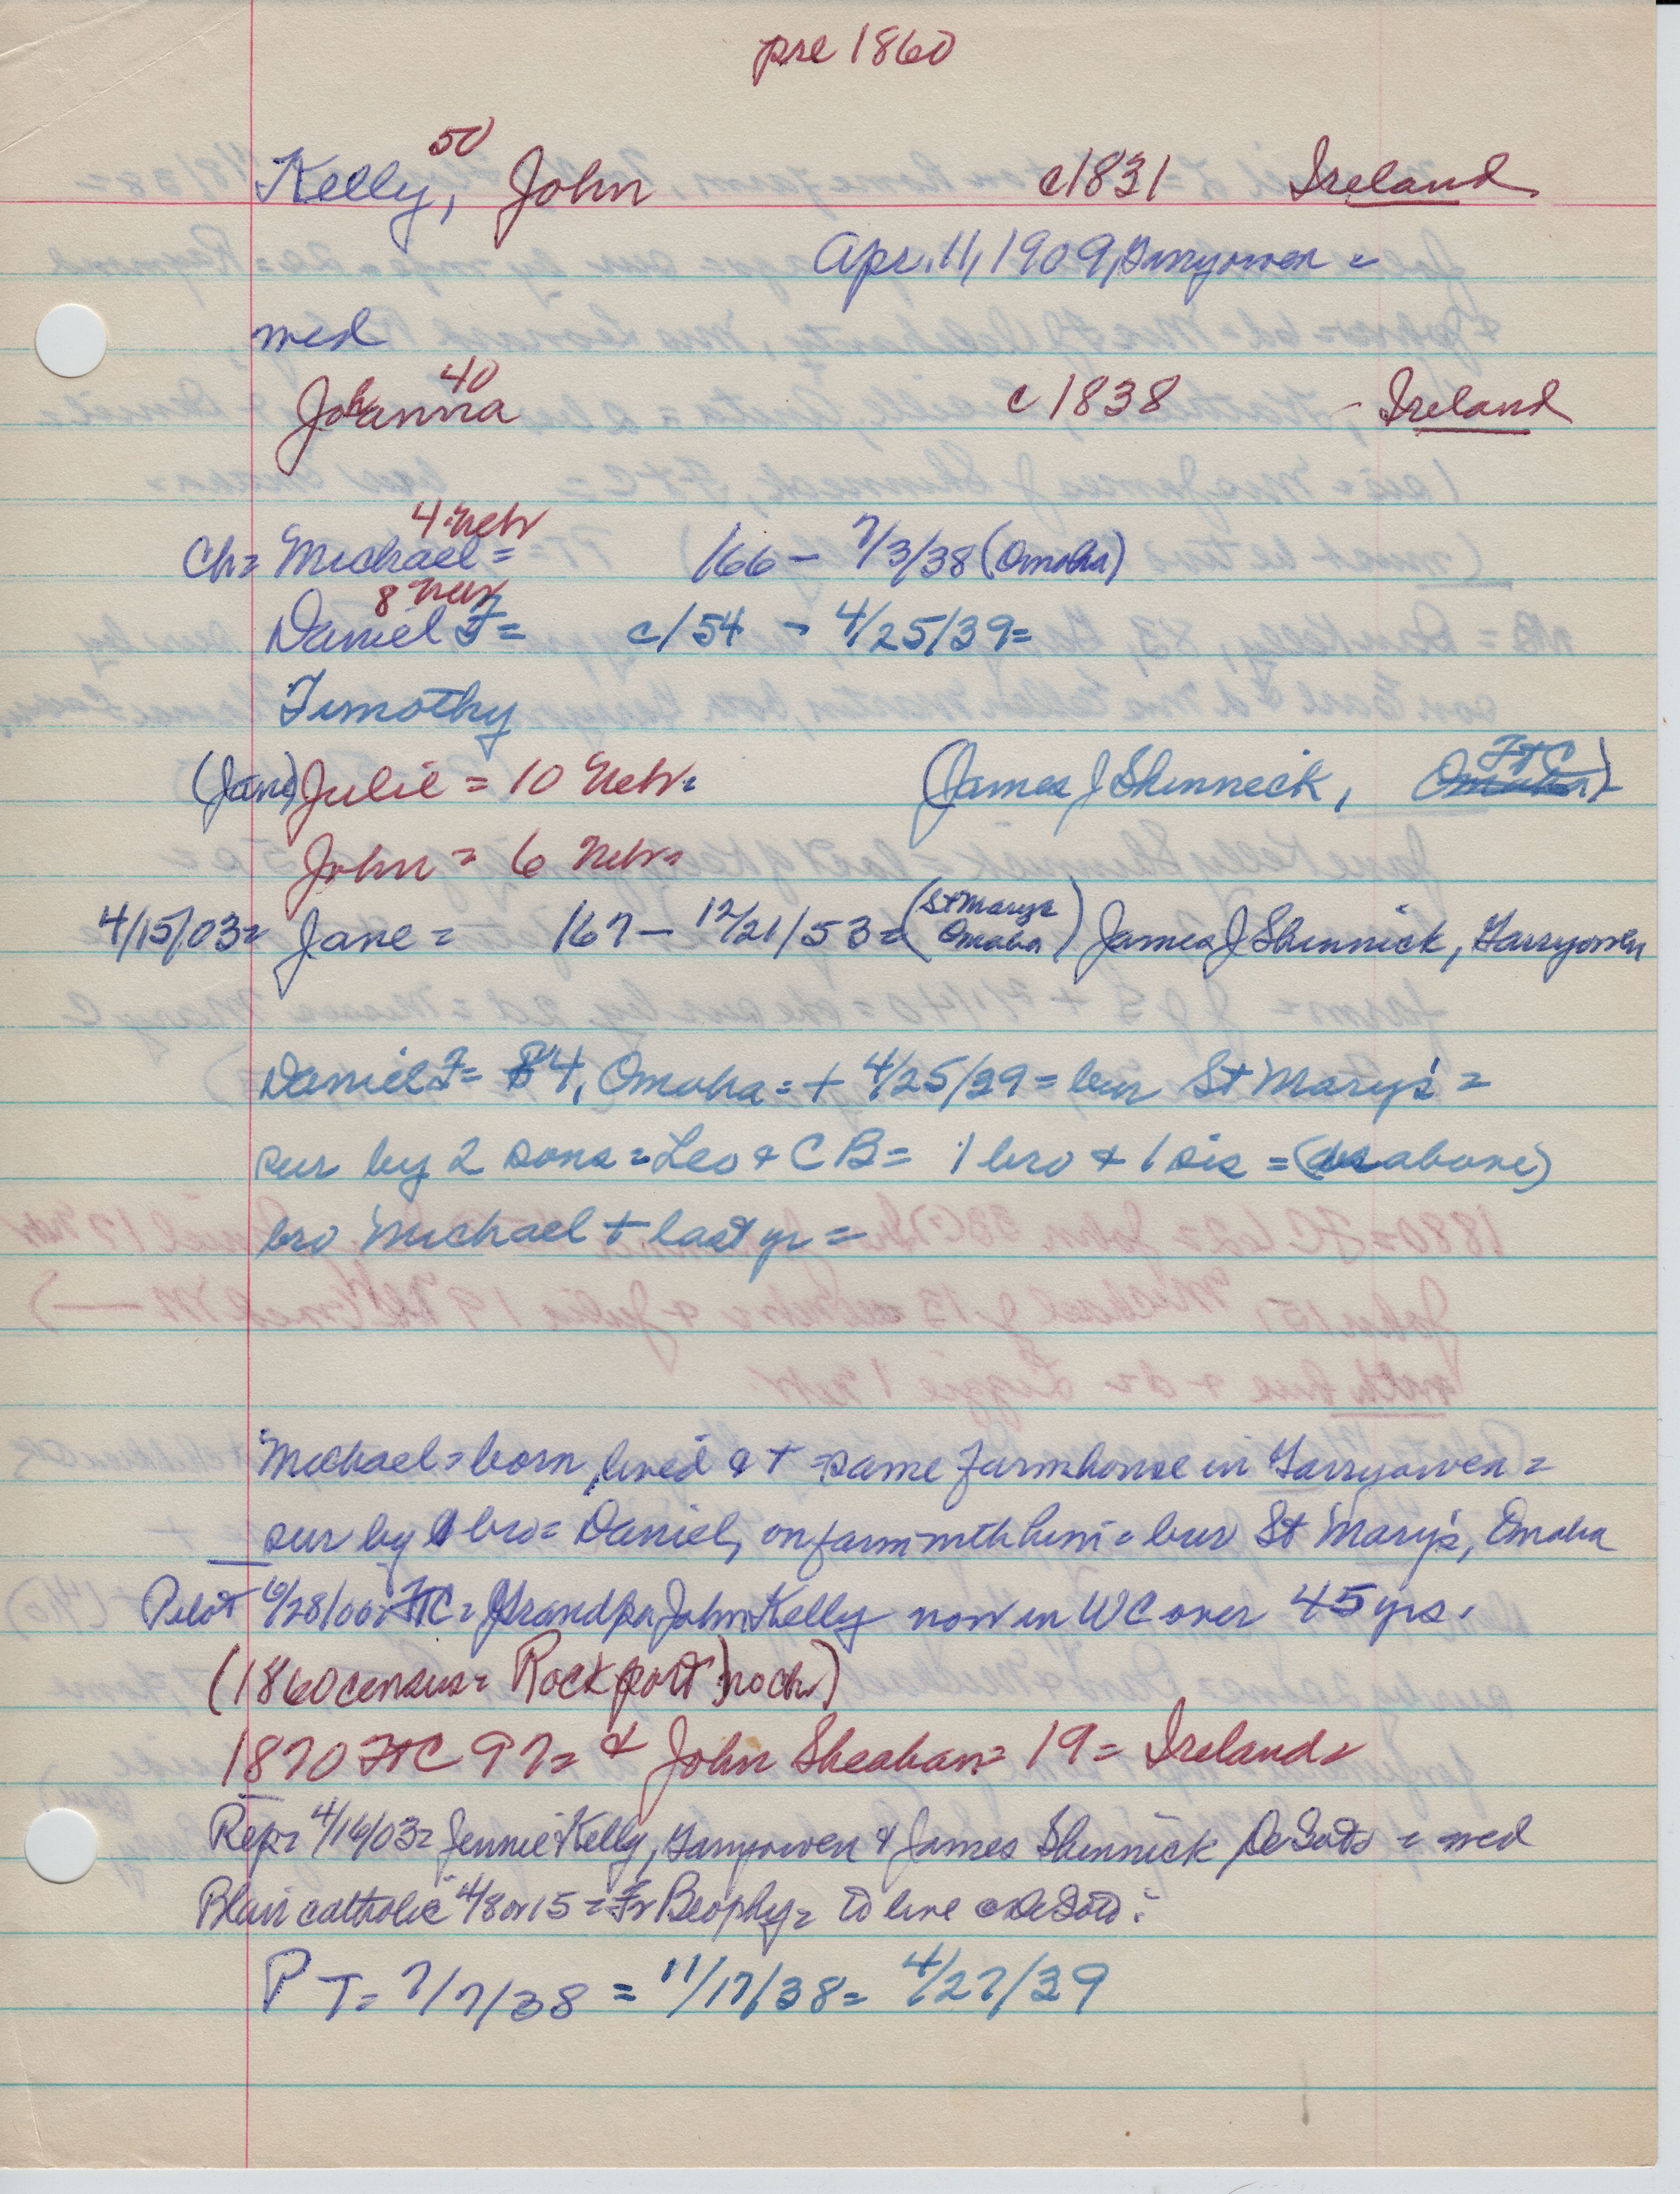 pre 1860
50
Kelly, John c1831 Ireland
Apr. 11, 1909, Garryowen =
med
40
Johanna c1838 - Ireland
4 Nebr
Ch= Michael = 166 - 7/3/38 (Omaha)
8 Nebr
Daniel F = c/54 - 4/25/39=
Timothy
(Jane) Julie = 10 Nebr= (James J Shinneck, Omaha FtC)
John = 6 Nebr=
4/15/03= Jane = 167 - 12/21/53 = (St Marys Omaha) James J Shinnick, Garryowen
Daniel F= 84, Omaha = + 4/25/39 = bur St Mary's =
sur by 2 sons = Leo & C B = 1 bro & 1 sis = (as above)
bro Michael + last yr =
Michael = born, lived & + = same farmhouse in Garryowen =
sur by 1 bro = Daniel, on farm with him = bur St Mary's, Omaha
Pilot 6/28/00= FtC = Grandpa John Kelly now in WC over 45 yrs.
(1860 census = Rockport) no ch)
1870 FtC 97= & John Sheahan = 19 = Ireland=
Rep= 4/16/03= Jennie Kelly, Garryowen & James Shinnick DeSoto = med
Blair catholic 4/8 or 15 = Fr Beophy= to live DeSoto =
PT= 7/7/38 = 11/17/38= 4/27/39